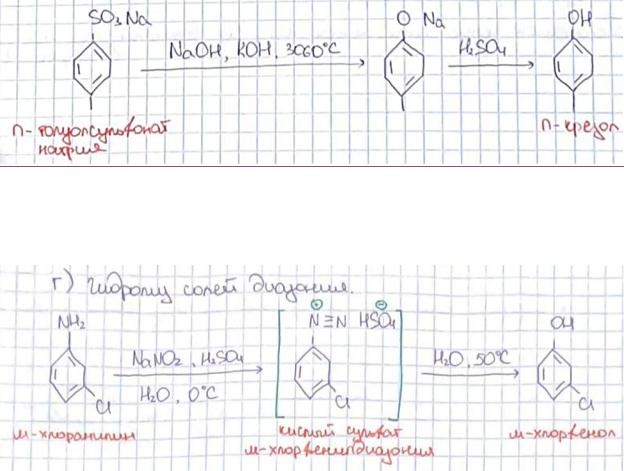 SO₃Na
O Na
OH
NaOH, KOH, 3060°C
H₂SO₄
п-толуолсульфонат
натрия
п-крезол
г) Гидролиз солей диазония.
NH₂
⊕ ⊖
N≡N HSO₄
OH
NaNO₂, H₂SO₄
H₂O, 0°C
H₂O, 50°C
Cl
Cl
Cl
м-хлоранилин
кислый сульфат
м-хлорфенилдиазония
м-хлорфенол